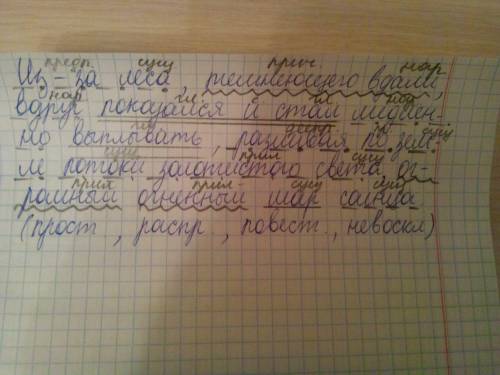 предл. сущ прич нар
Из-за леса, темнеющего вдали,
нар гл гл нар
вдруг показался и стал медлен-
но выплывать, разливая по зем-
ле потоки золотистого света, ог-
ромный огненный шар солнца.
(прост., распр., повест., невоскл)